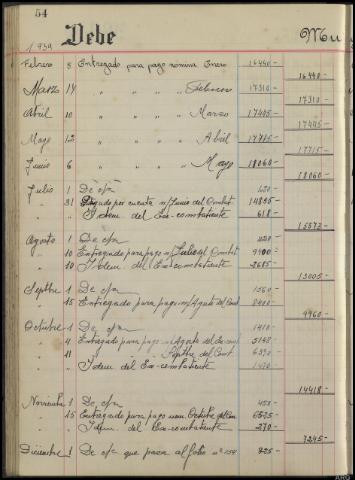 54
1.939
Debe
Mu
Febrero 8 Entregado para pago nomina Enero 16440-
16440-
Marzo 14 " " " " Febrero 17310-
17310-
Abril 10 " " " " Marzo 17445-
17445-
Mayo 12 " " " " Abril 17715-
17715-
Junio 6 " " " " Mayo 18060-
18060-
Julio 1 De c/a
" 31 Pagado por cuenta n/ Junio del Combat 14895-
" Idem del Ex-combatiente 618-
15573-
Agosto 1 De c/a
" 10 Entregado para pago n/ Julio al Combat 9900-
" 10 Idem del Ex-combatiente 2685-
13005-
Septbre 1 De c/a 1560-
" 15 Entregado para pago n/ Agosto del Comt 8400-
9960-
Octubre 1 De c/a 1410-
" 4 Entregado para pago n/ Agosto del Ex-com 5148-
" 11 " " " Septbre del Comt 6390-
" Idem del Ex-combatiente 1470-
14418-
Noviembre 1 De c/a
" 15 Entregado para pago nom. Octubre del Com 6525-
" Idem del Ex-combatiente 270-
7245-
Diciembre 1 De c/a que pasa al folio nº 154 825-